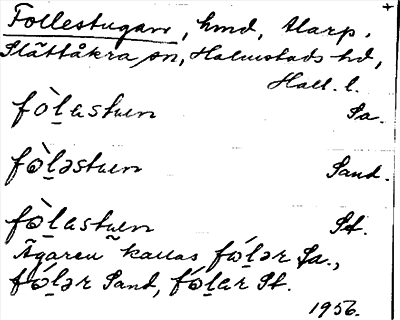 Follestugan, hmd, Harp.
Slättåkra sn, Halmstads hd,
Hall. l.
fò̱lastuen Sa.
fò̱ləstuen Sand.
fò̱lastuen St.
Ägaren kallas fó̱lər Sa.,
fó̱lər Sand, fó̱lar St.
1956.